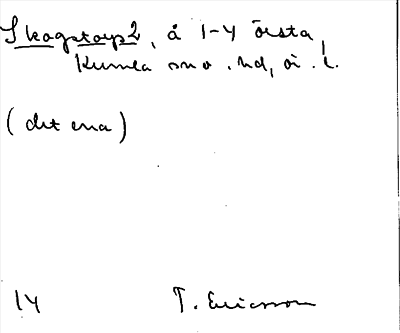 Skogstorp 2, å 1-4 Örsta,
Kumla sn o. hd, ö. l.
(det ena)
14 T. Ericsson